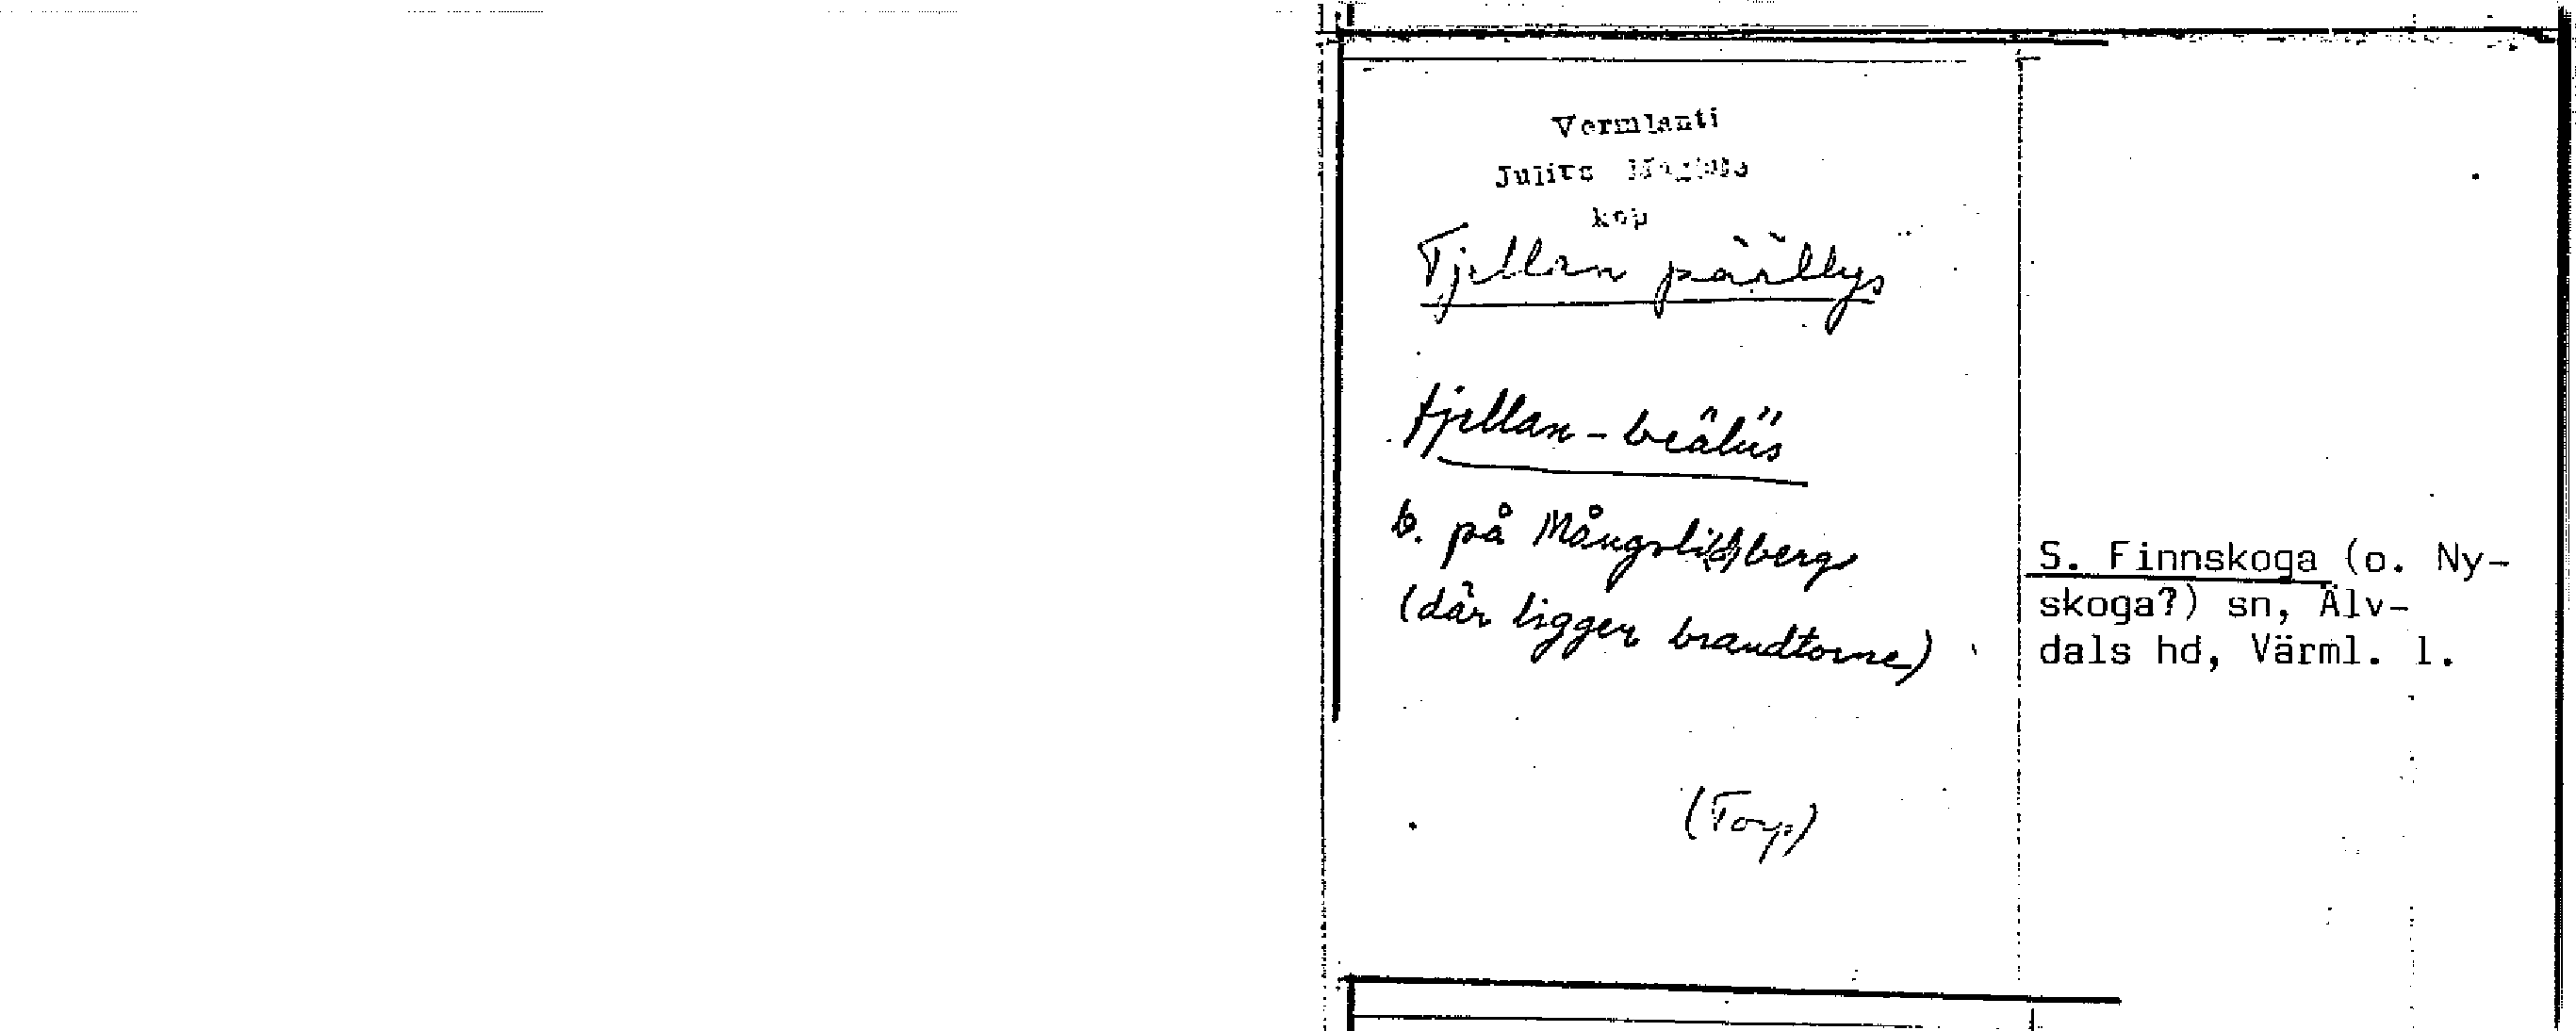 Vermlanti
Julius
kop
Tjellan päällys
tjellan-beälüs
b. på Mångslidsberg
(där ligger brandtorne)
(Torp)
S. Finnskoga (o. Ny-
skoga?) sn, Älv-
dals hd, Värml. l.